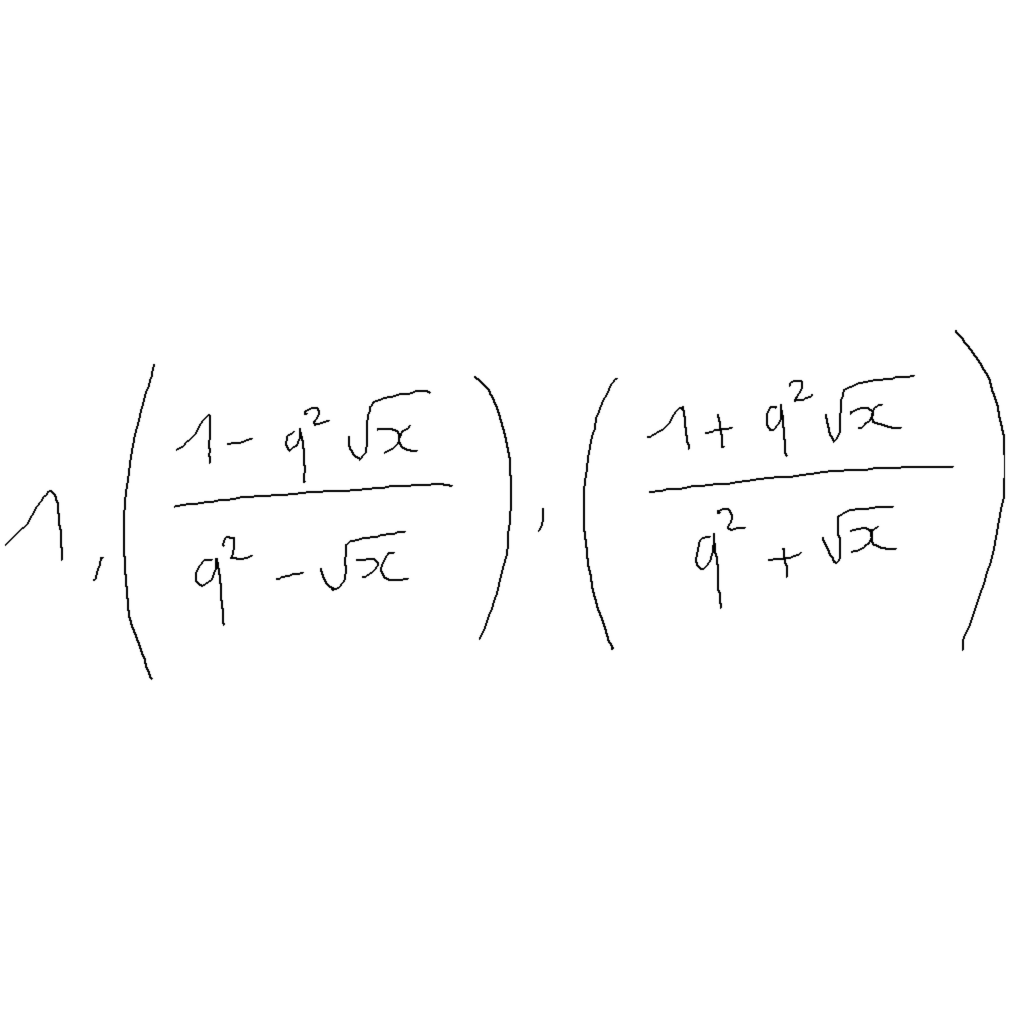 1, ( (1 - q² √x) / (q² - √x) ), ( (1 + q² √x) / (q² + √x) )